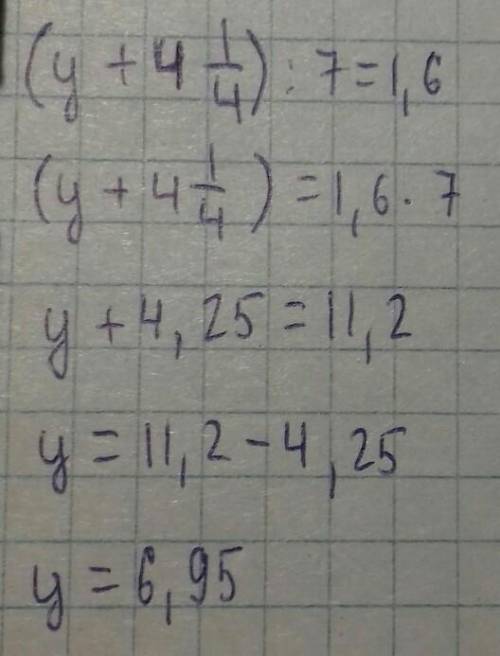 (y + 4 1/4) : 7 = 1,6
(y + 4 1/4) = 1,6 · 7
y + 4,25 = 11,2
y = 11,2 - 4,25
y = 6,95